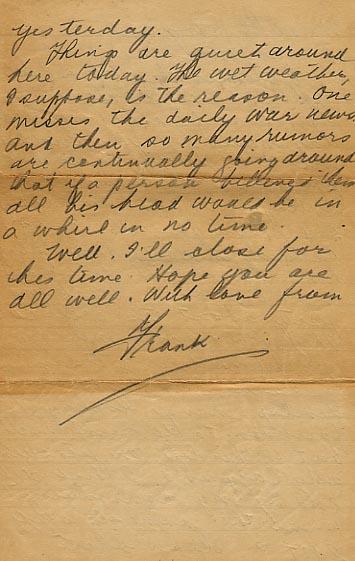 yesterday.
Things are quiet around
here today. The wet weather,
I suppose, is the reason. One
misses the daily war news,
and then so many rumors
are continually going around
that if a person believed them
all his head would be in
a whirl in no time.
Well. I'll close for
this time. Hope you are
all well. With love from
Frank